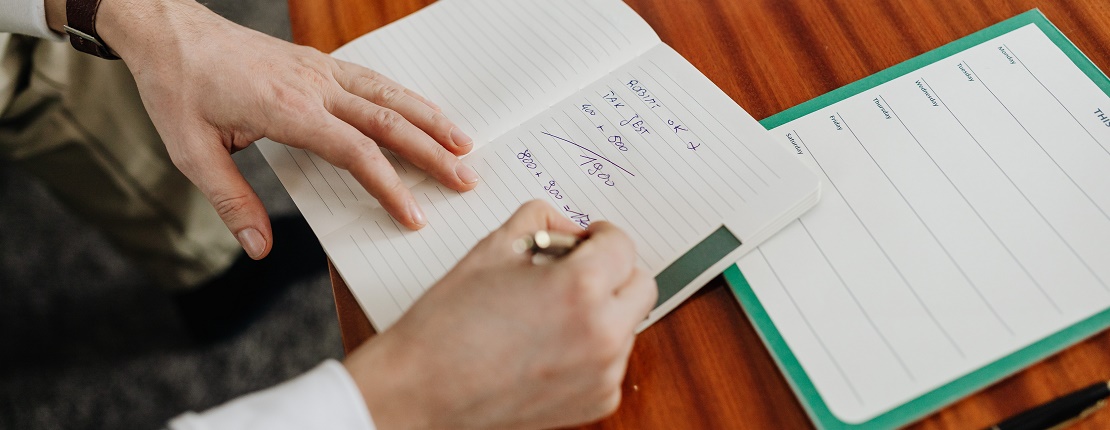 ROBIMY OK →
TAK JEST
400 + 500
1900
800 + 900 = 170
THIS
Monday
Tuesday
Wednesday
Thursday
Friday
Saturday